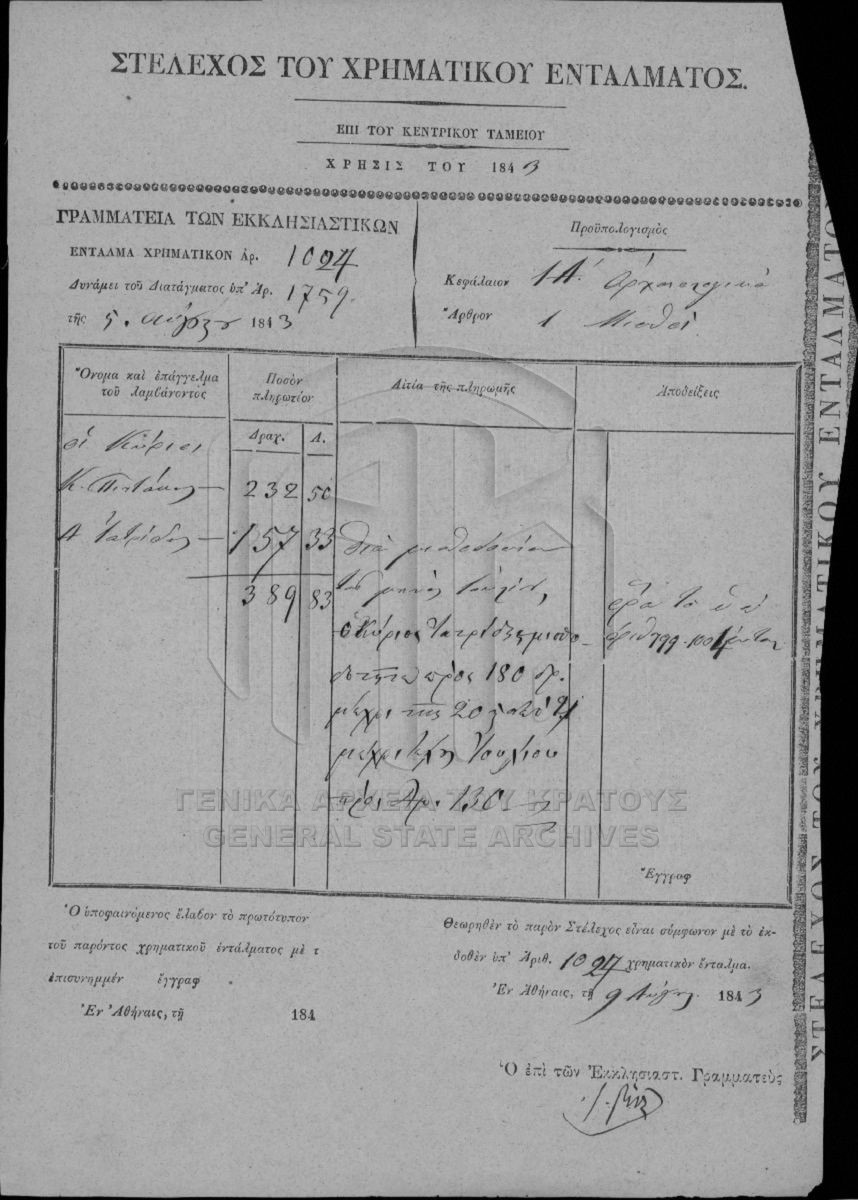 ΣΤΕΛΕΧΟΣ ΤΟΥ ΧΡΗΜΑΤΙΚΟΥ ΕΝΤΑΛΜΑΤΟΣ.
ΕΠΙ ΤΟΥ ΚΕΝΤΡΙΚΟΥ ΤΑΜΕΙΟΥ
ΧΡΗΣΙΣ ΤΟΥ 1843
ΓΡΑΜΜΑΤΕΙΑ ΤΩΝ ΕΚΚΛΗΣΙΑΣΤΙΚΩΝ
ΕΝΤΑΛΜΑ ΧΡΗΜΑΤΙΚΟΝ Ἀρ. 1027
Δυνάμει τοῦ Διατάγματος ὑπ' Ἀρ. 1759.
τῆς 5. 1843
Προϋπολογισμὸς
Κεφάλαιον 1Α΄. Ἀρχαιολογικὰ
Ἄρθρον 1 Μισθοὶ
Ὄνομα καὶ ἐπάγγελμα τοῦ λαμβάνοντος
Ποσὸν πληρωτέον
Δραχ. Λ.
Αἰτία τῆς πληρωμῆς
Ἀποδείξεις
οἱ Κύριοι
Κ. Πιττάκης — 232 50
Α Ἰατρίδης — 157 33
389 83
διὰ μισθοδοσίαν
τοῦ μηνὸς Ἰουλίου,
ὁ Κύριος Ἰατρίδης
πρὸς 180 δρ.
μέχρι τῆς 20
μέχρι τέλους Ἰουλίου
πρὸς Δρ. 130
Ἔγγραφ
Ὁ ὑποφαινόμενος ἔλαβον τὸ πρωτότυπον
τοῦ παρόντος χρηματικοῦ ἐντάλματος μὲ τ
ἐπισυνημμέν ἔγγραφ
Ἐν Ἀθήναις, τῇ 184
Θεωρηθὲν τὸ παρὸν Στέλεχος εἶναι σύμφωνον μὲ τὸ ἐκ-
δοθὲν ὑπ' Ἀριθ. 1027 χρηματικὸν ἔνταλμα.
Ἐν Ἀθήναις, τῇ 9 Αὐγ. 1843
Ὁ ἐπὶ τῶν Ἐκκλησιαστ. Γραμματεὺς
ΣΤΕΛΕΧΟΣ ΤΟΥ ΧΡΗΜΑΤΙΚΟΥ ΕΝΤΑΛΜΑΤΟΣ
ΓΕΝΙΚΑ ΑΡΧΕΙΑ ΤΟΥ ΚΡΑΤΟΥΣ
GENERAL STATE ARCHIVES